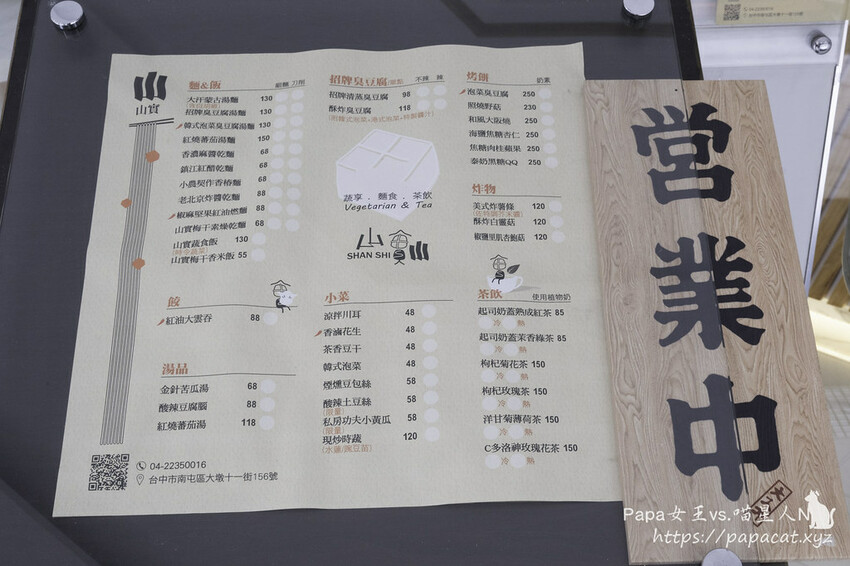 04-22350016
山實
麵&飯
細麵 刀削
大汗蒙古湯麵 130
招牌臭豆腐湯麵 130
韓式泡菜臭豆腐湯麵 130
紅燒蕃茄湯麵 150
香濃麻醬乾麵 68
鎮江紅醋乾麵 68
小農契作香椿麵 68
老北京炸醬乾麵 88
椒麻堅果紅油燃麵 88
山實梅干素燥乾麵 68
山實蔬食飯 130
(時令蔬菜)
山實梅干香米飯 55
餃
紅油大雲吞 88
湯品
金針苦瓜湯 68
酸辣豆腐腦 88
紅燒蕃茄湯 118
04-22350016
台中市南屯區大墩十一街156號
招牌臭豆腐/單點
不辣 辣
招牌清蒸臭豆腐 98
酥炸臭豆腐 118
(附韓式泡菜+港式泡菜+特製醬汁)
蔬享、麵食、茶飲
Vegetarian & Tea
山實
SHAN SHI
小菜
涼拌川耳 48
香滷花生 48
茶香豆干 48
韓式泡菜 48
煙燻豆包絲 58
酸辣土豆絲 58
(限量)
私房功夫小黃瓜 58
(限量)
現炒時蔬 120
(水蓮/豌豆苗)
烤餅
奶素
泡菜臭豆腐 250
照燒野菇 230
和風大阪燒 250
海鹽焦糖杏仁 250
焦糖肉桂蘋果 250
泰奶黑糖QQ 250
炸物
美式炸薯條 120
(佐特調芥末醬)
酥炸白靈菇 120
椒鹽里肌杏鮑菇 120
茶飲
使用植物奶
起司奶蓋熟成紅茶 85
冷 熱
起司奶蓋茉香綠茶 85
冷 熱
枸杞菊花茶 150
冷 熱
枸杞玫瑰茶 150
冷 熱
洋甘菊薄荷茶 150
冷 熱
C多洛神玫瑰花茶 150
冷 熱
營業中
Papa女王vs.喵星人N
https://papacat.xyz